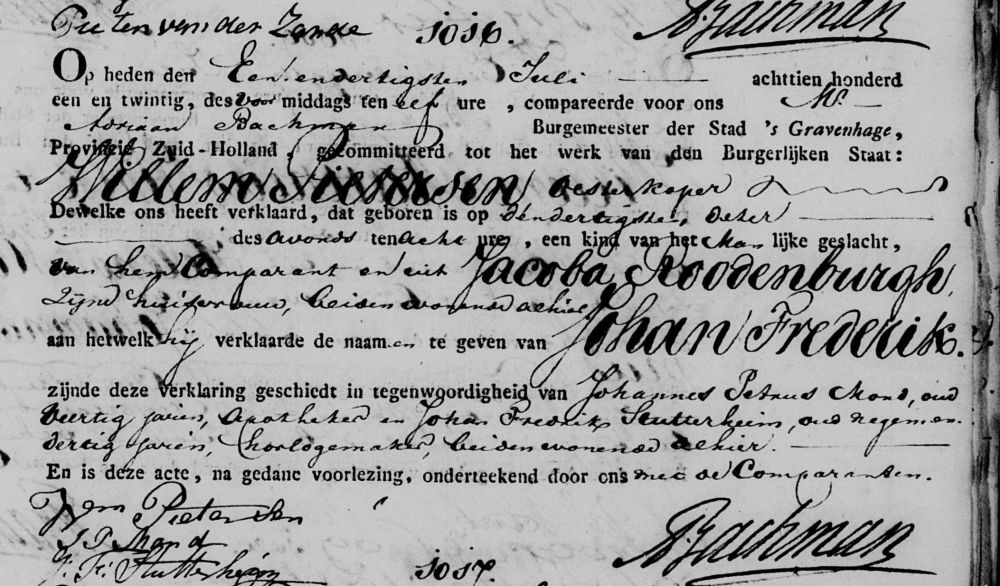 Pieter van der Zande 1016. ABachman
Op heden den Een en dertigsten Juli achttien honderd
een en twintig, des voor middags ten elf ure, compareerde voor ons Mr.
Adriaan Bachman Burgemeester der Stad 's Gravenhage,
Provincie Zuid-Holland, gecommitteerd tot het werk van den Burgerlijken Staat:
Willem Pietersen oesterkoper
Dewelke ons heeft verklaard, dat geboren is op dendertigsten, dezer
des avonds ten acht ure, een kind van het Man lijke geslacht,
van hem Comparant en uit Jacoba Roodenburgh,
Zijne huisvrouw, beiden wonende alhier
aan hetwelk hij verklaarde de naamen te geven van Johan Frederik.
zijnde deze verklaring geschiedt in tegenwoordigheid van Johannes Petrus Mond, oud
veertig jaren, Apotheker en Johan Fredrik Stutterheim, oud negen en
dertig jaren, Horlogemaker, beiden wonende alhier.
En is deze acte, na gedane voorlezing, onderteekend door ons met de Comparanten.
Wem Pietersen
J P Mond ABachman
J: Fr: Stutterheim 1017.